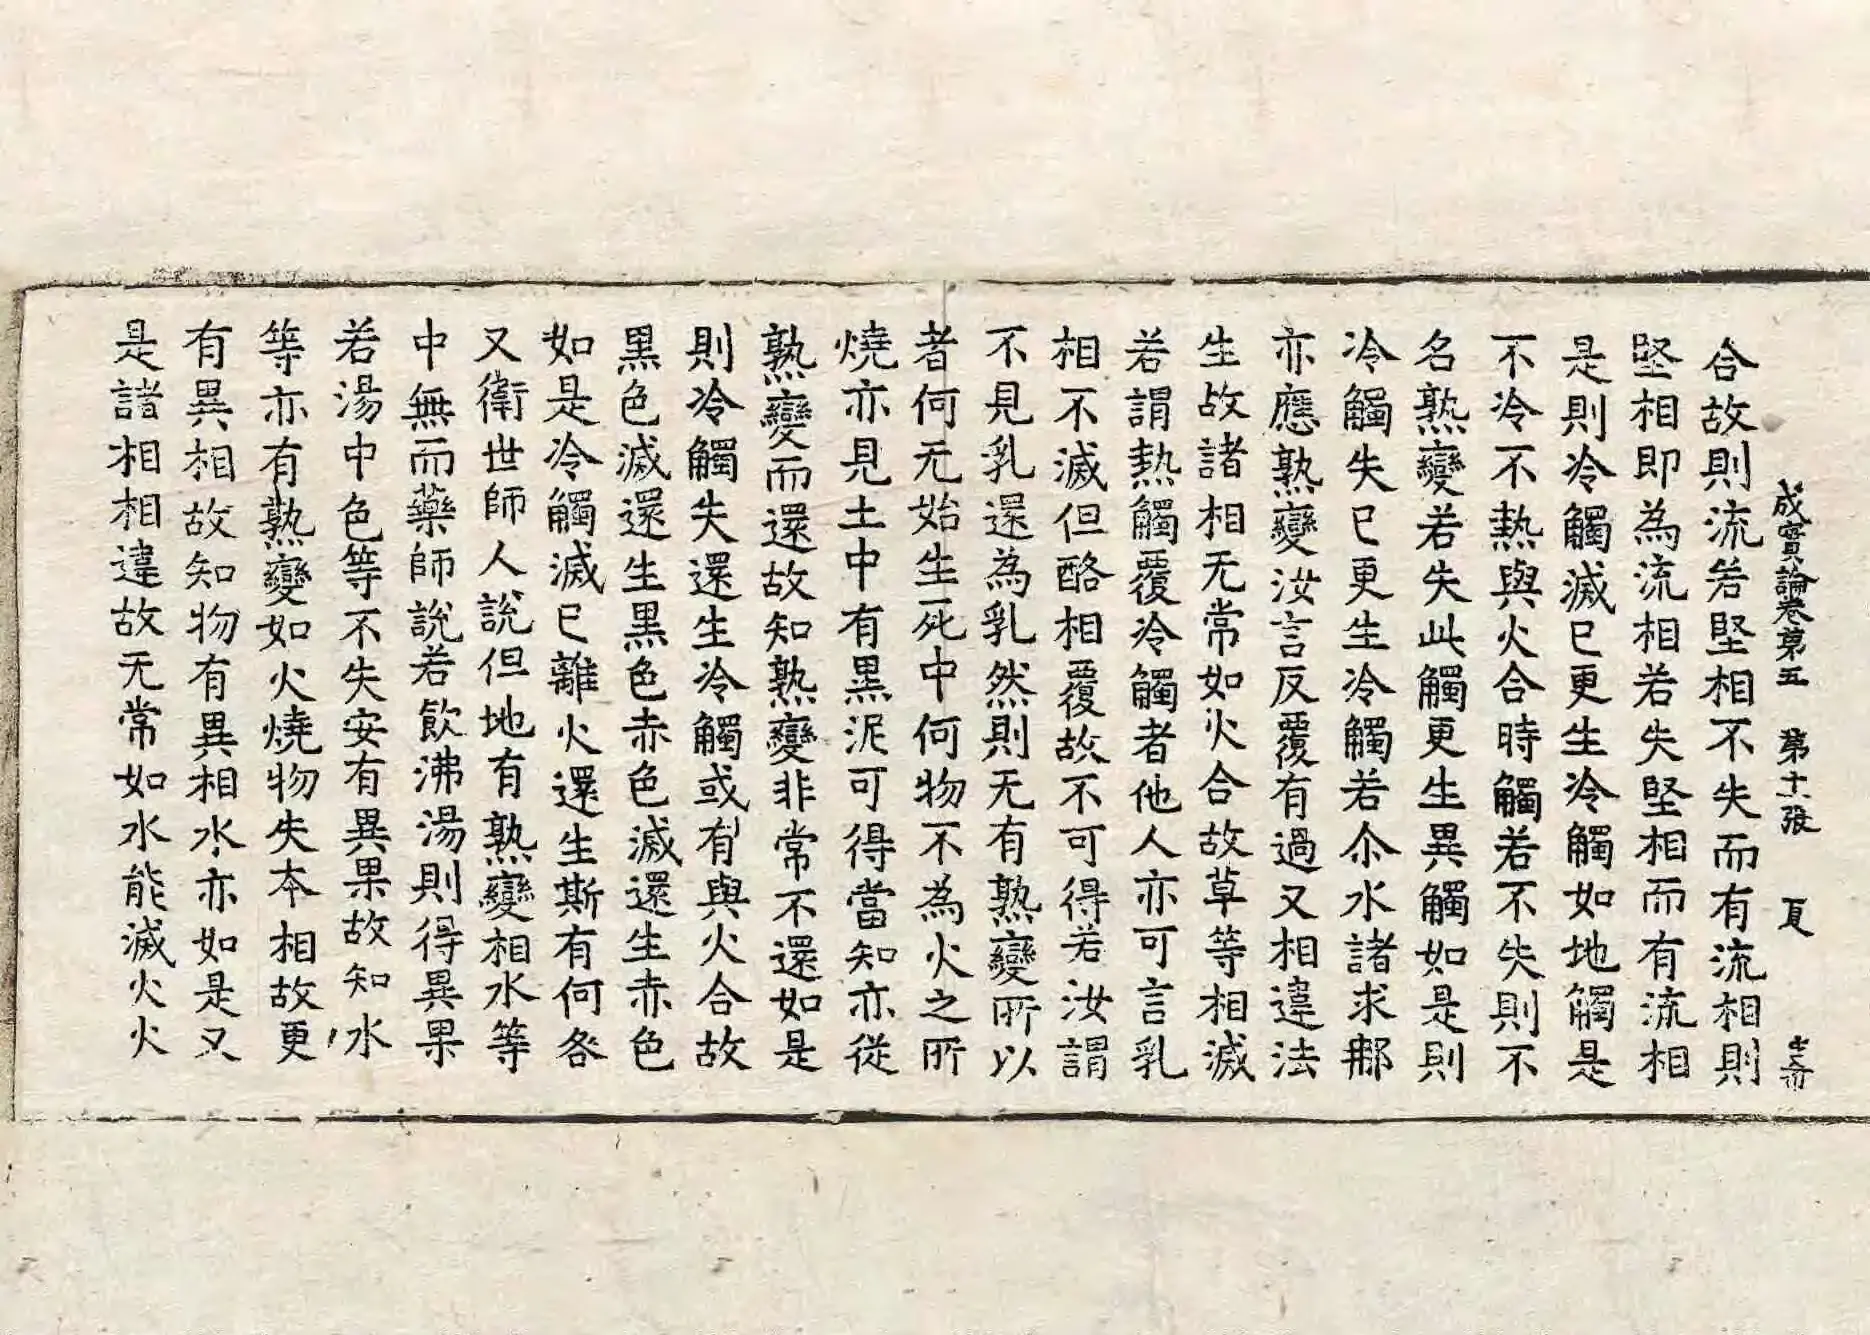 成實論卷第五 第十一張 夏
合故則流若堅相不失而有流相則
堅相即為流相若失堅相而有流相
是則冷觸滅已更生冷觸如地觸是
不冷不熱與火合時觸若不失則不
名熟變若失此觸更生異觸如是則
冷觸失已更生冷觸若尒水諸求那
亦應熟變汝言反覆有過又相違法
生故諸相无常如火合故草等相滅
若謂熱觸覆冷觸者他人亦可言乳
相不滅但酪相覆故不可得若汝謂
不見乳還為乳然則无有熟變所以
者何无始生死中何物不為火之所
燒亦見土中有黑泥可得當知亦從
熟變而還故知熟變非常不還如是
則冷觸失還生冷觸或有與火合故
黑色滅還生黑色赤色滅還生赤色
如是冷觸滅已離火還生斯有何咎
又衛世師人說但地有熟變相水等
中無而藥師說若飲沸湯則得異果
若湯中色等不失安有異果故知水
等亦有熟變如火燒物失本相故更
有異相故知物有異相水亦如是又
是諸相相違故无常如水能滅火火